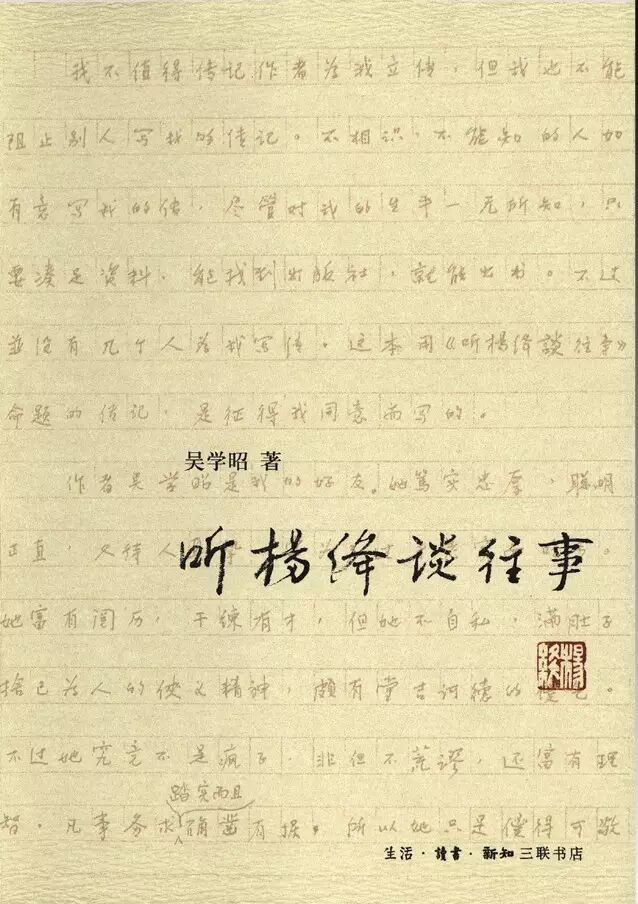 我不值得传记作者为我立传，但我也不能
阻止别人写我的传记。不相识、不能知的人如
有意写我的传，尽管对我的生平一无所知，只
要凑足资料，能找到出版社，就能出书。不过
並没有几个人为我写传。这本用《听杨绛談往事》
命题的传记，是征得我同意而写的。
吴学昭 著
作者吴学昭是我的好友。她篤实忠厚，聪明
正直，又待人
听杨绛谈往事
她富有阅历，干練有才，但她不自私，满肚子
捨己为人的侠义精神，颇有堂吉诃德的
不过她究竟不是疯子，非但不荒謬，还富有理
踏实而且
智，凡事务求确凿有据。所以她只是傻得可敬
生活·讀書·新知三联书店